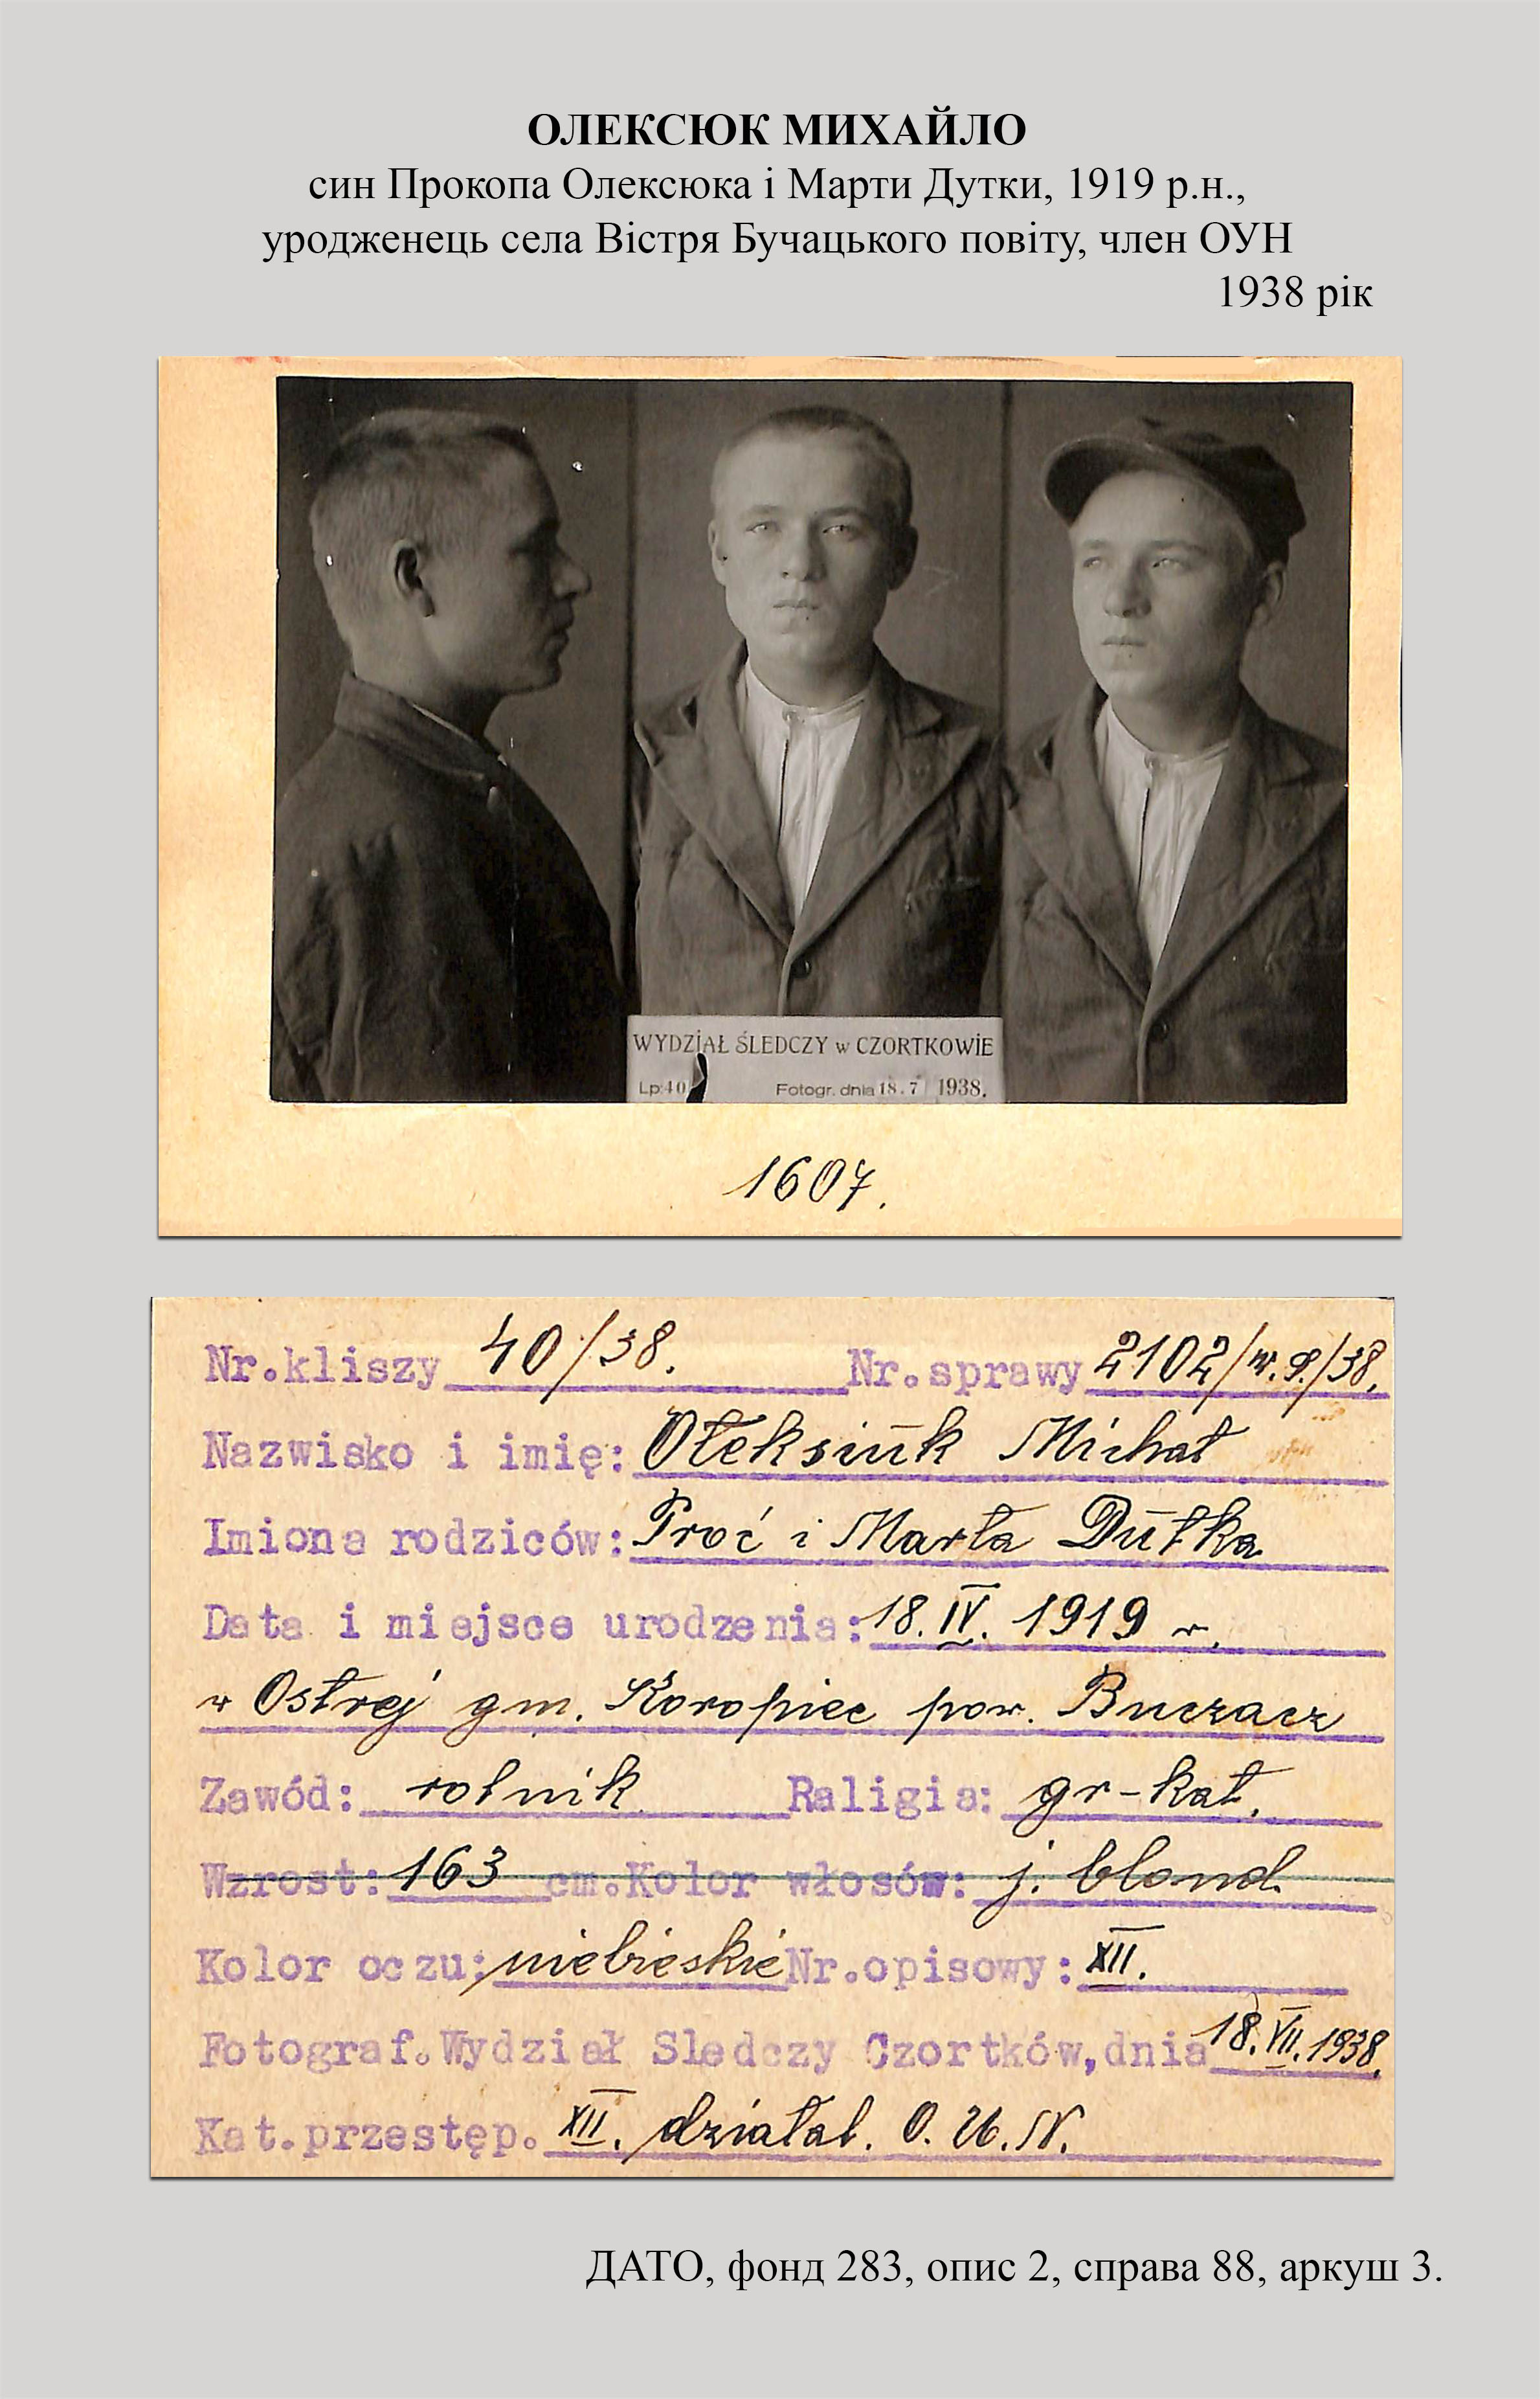 ОЛЕКСЮК МИХАЙЛО
син Прокопа Олексюка і Марти Дутки, 1919 р.н.,
уродженець села Вістря Бучацького повіту, член ОУН
1938 рік
WYDZIAŁ ŚLEDCZY w CZORTKOWIE
Lp: 40 Fotogr. dnia 18.7 1938.
1607.
Nr.kliszy 40/38. Nr.sprawy 2102/w.ś./38.
Nazwisko i imię: Ołeksiuk Michał
Imiona rodziców: Proć i Marta Dutka
Data i miejsce urodzenia: 18.IV. 1919 r.
w Ostrej gm. Koropiec pow. Buczacz
Zawód: rolnik Raligia: gr-kat.
Wzrost: 163 cm. Kolor włosów: j. blond.
Kolor oczu: niebieskie Nr.opisowy: XII.
Fotograf. Wydział Sledczy Czortków, dnia 18.VII.1938.
Kat.przestęp. XII. działal. O.U.N.
ДАТО, фонд 283, опис 2, справа 88, аркуш 3.